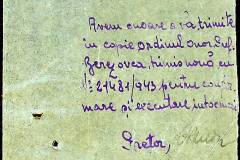 Avem onoare a vă trimite
în copie ordinul Onor. Pref.
Berzovca, trimis nouă cu
21487/943 pentru confir
mare și executare întocmai
Pretor,